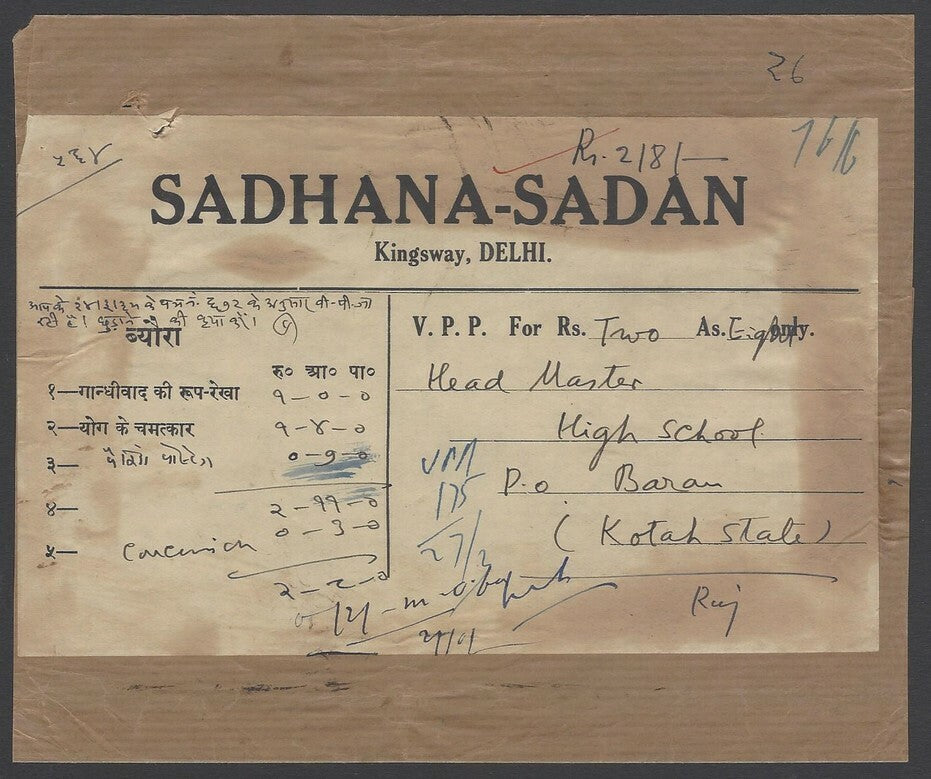 २६
५६४
Rs. 2/8/—
SADHANA-SADAN
Kingsway, DELHI.
आपके के पत्र नं. ६७२ के अनुसार वी-पी-जा
रही है। छुड़ाने की कृपा करें।
ब्योरा
रु० आ० पा०
१—गान्धीवाद की रूप-रेखा १-०-०
२—योग के चमत्कार १-४-०
३—
४— २-११-०
०-३-०
५—
V. P. P. For Rs. Two As. Eight only.
Head Master
High School
P.o. Baran
(Kotah State)
Raj
VPP
175
27/2